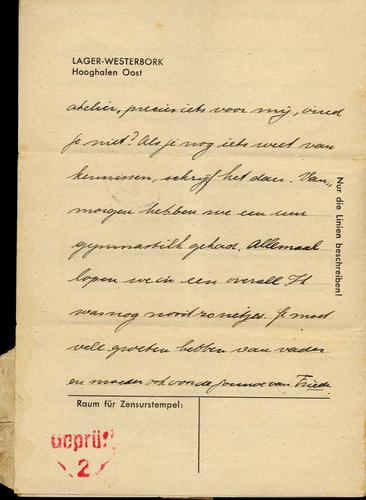 LAGER-WESTERBORK
Hooghalen Oost
atelier, precies iets voor mij, vind
je niet? Als je nog iets weet van
kennissen, schrijf het dan. Van„
morgen hebben we een uur
gymnastiek gehad. Allemaal
lopen we in een overall It
was nog nooit zo netjes. Je moet
vele groeten hebben van vader
en moeder ook voor de jouwe van Friede.
Nur die Linien beschreiben!
Raum für Zensurstempel:
Geprüf
2